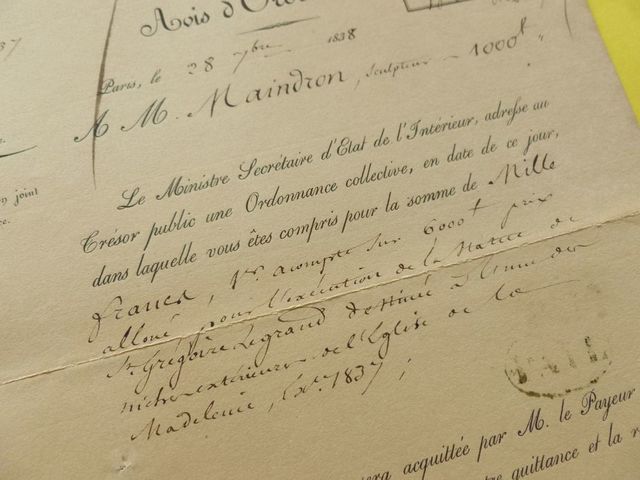 Avis d'Ord
Paris, le 28 7bre 1838
A M. Maindron, sculpteur - 1000f "
Le Ministre Secrétaire d'Etat de l'Intérieur, adresse au
Trésor public une Ordonnance collective, en date de ce jour,
dans laquelle vous êtes compris pour la somme de Mille
francs, 1er acompte sur 6000f prix
alloué pour l'exécution de la Statue de
St. Grégoire Legrand destinée à l'une des
niches extérieures de l'Eglise de la
Madeleine, Exce. 1837;
837
n joint
ce.
sera acquittée par M. le Payeur
tre quittance et la r